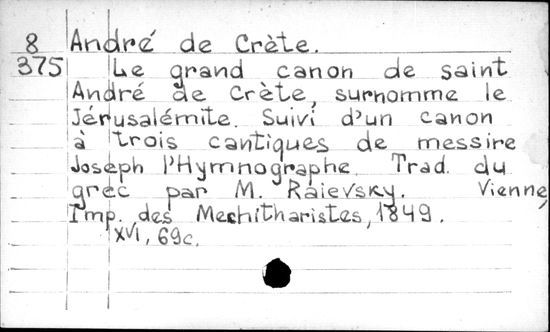 8 André de Crète.
375 Le grand canon de saint
André de Crète, surnomme le
Jérusalémite. Suivi d'un canon
à trois cantiques de messire
Joseph l'Hymnographe. Trad. du
grec par M. Raievsky. Vienne,
Imp. des Mechitharistes, 1849.
XVI, 69c.